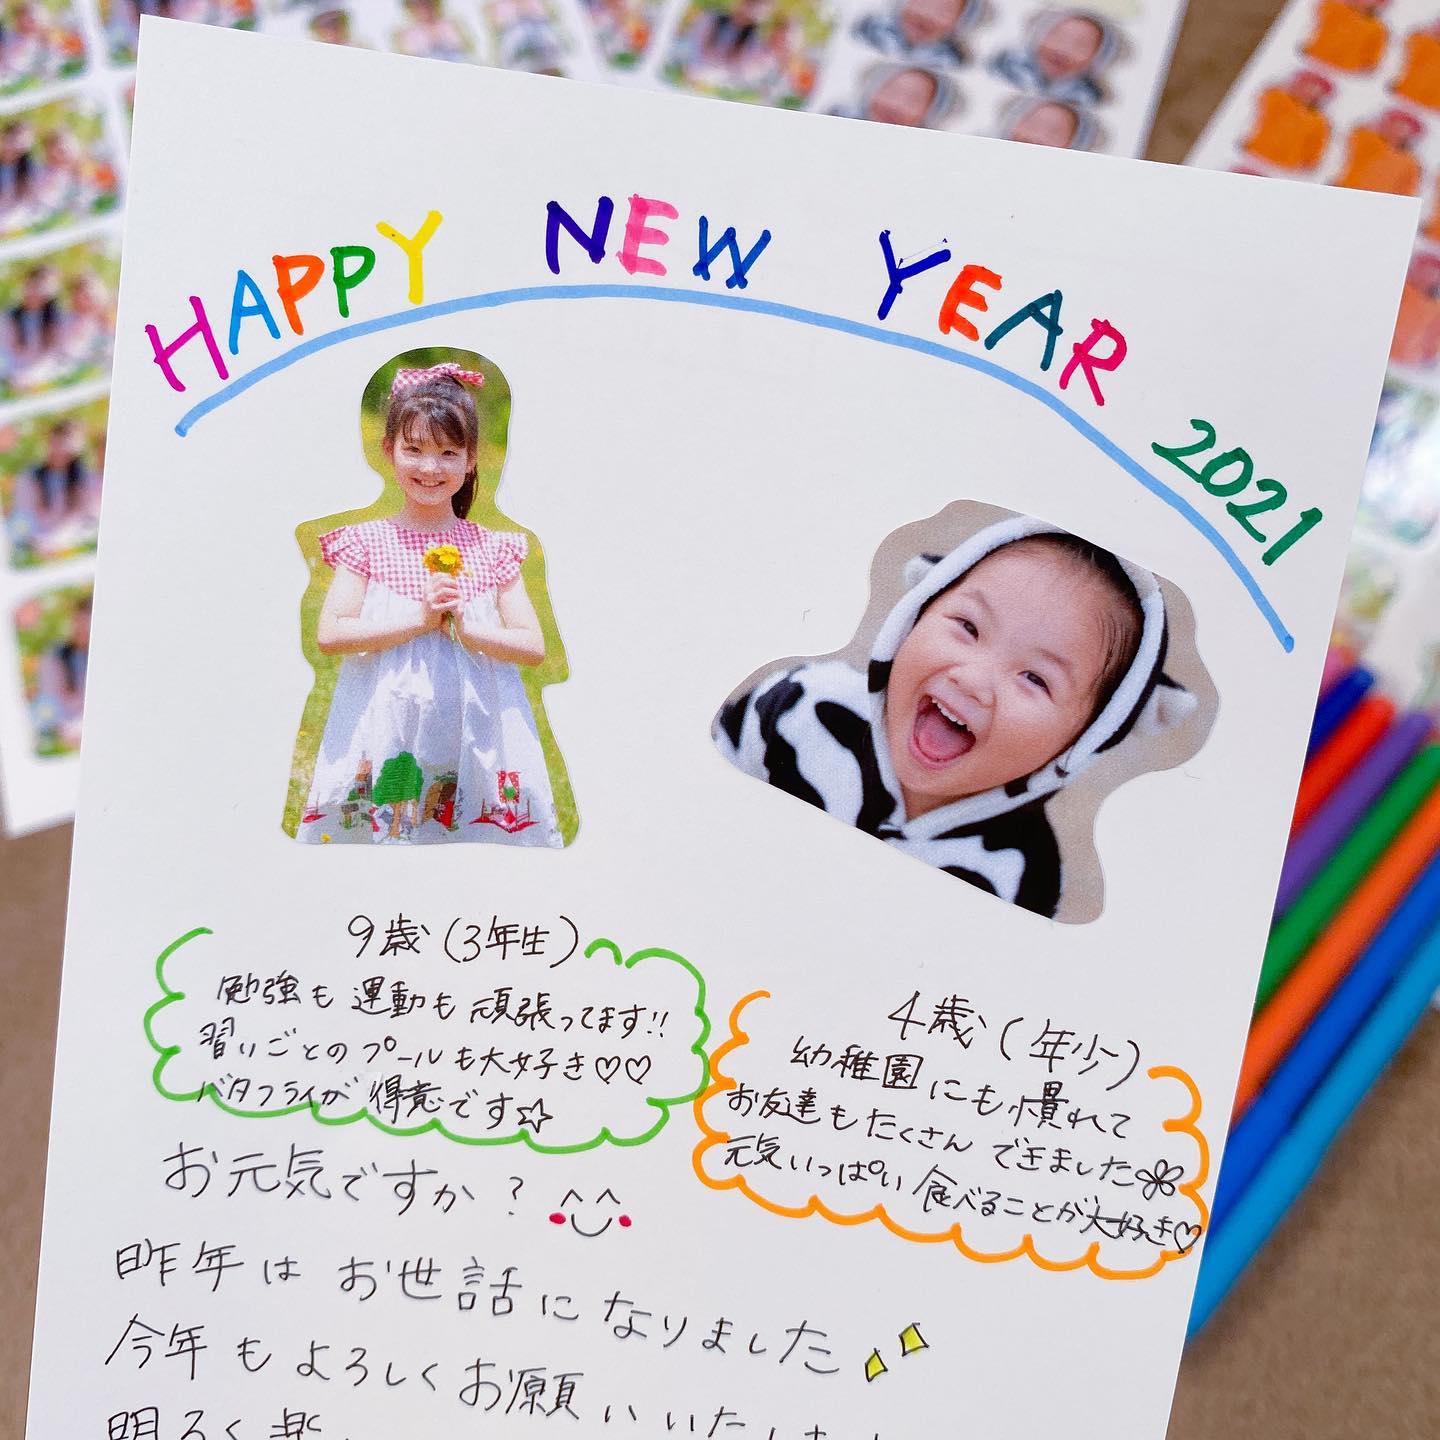 HAPPY NEW YEAR 2021
9歳(3年生)
勉強も運動も頑張ってます!!
習いごとのプールも大好き♡♡
バタフライが得意です☆
4歳(年少)
幼稚園にも慣れて
お友達もたくさんできました
元気いっぱい食べることが大好き♡
お元気ですか?
昨年はお世話になりました
今年もよろしくお願いいたします
明るく楽